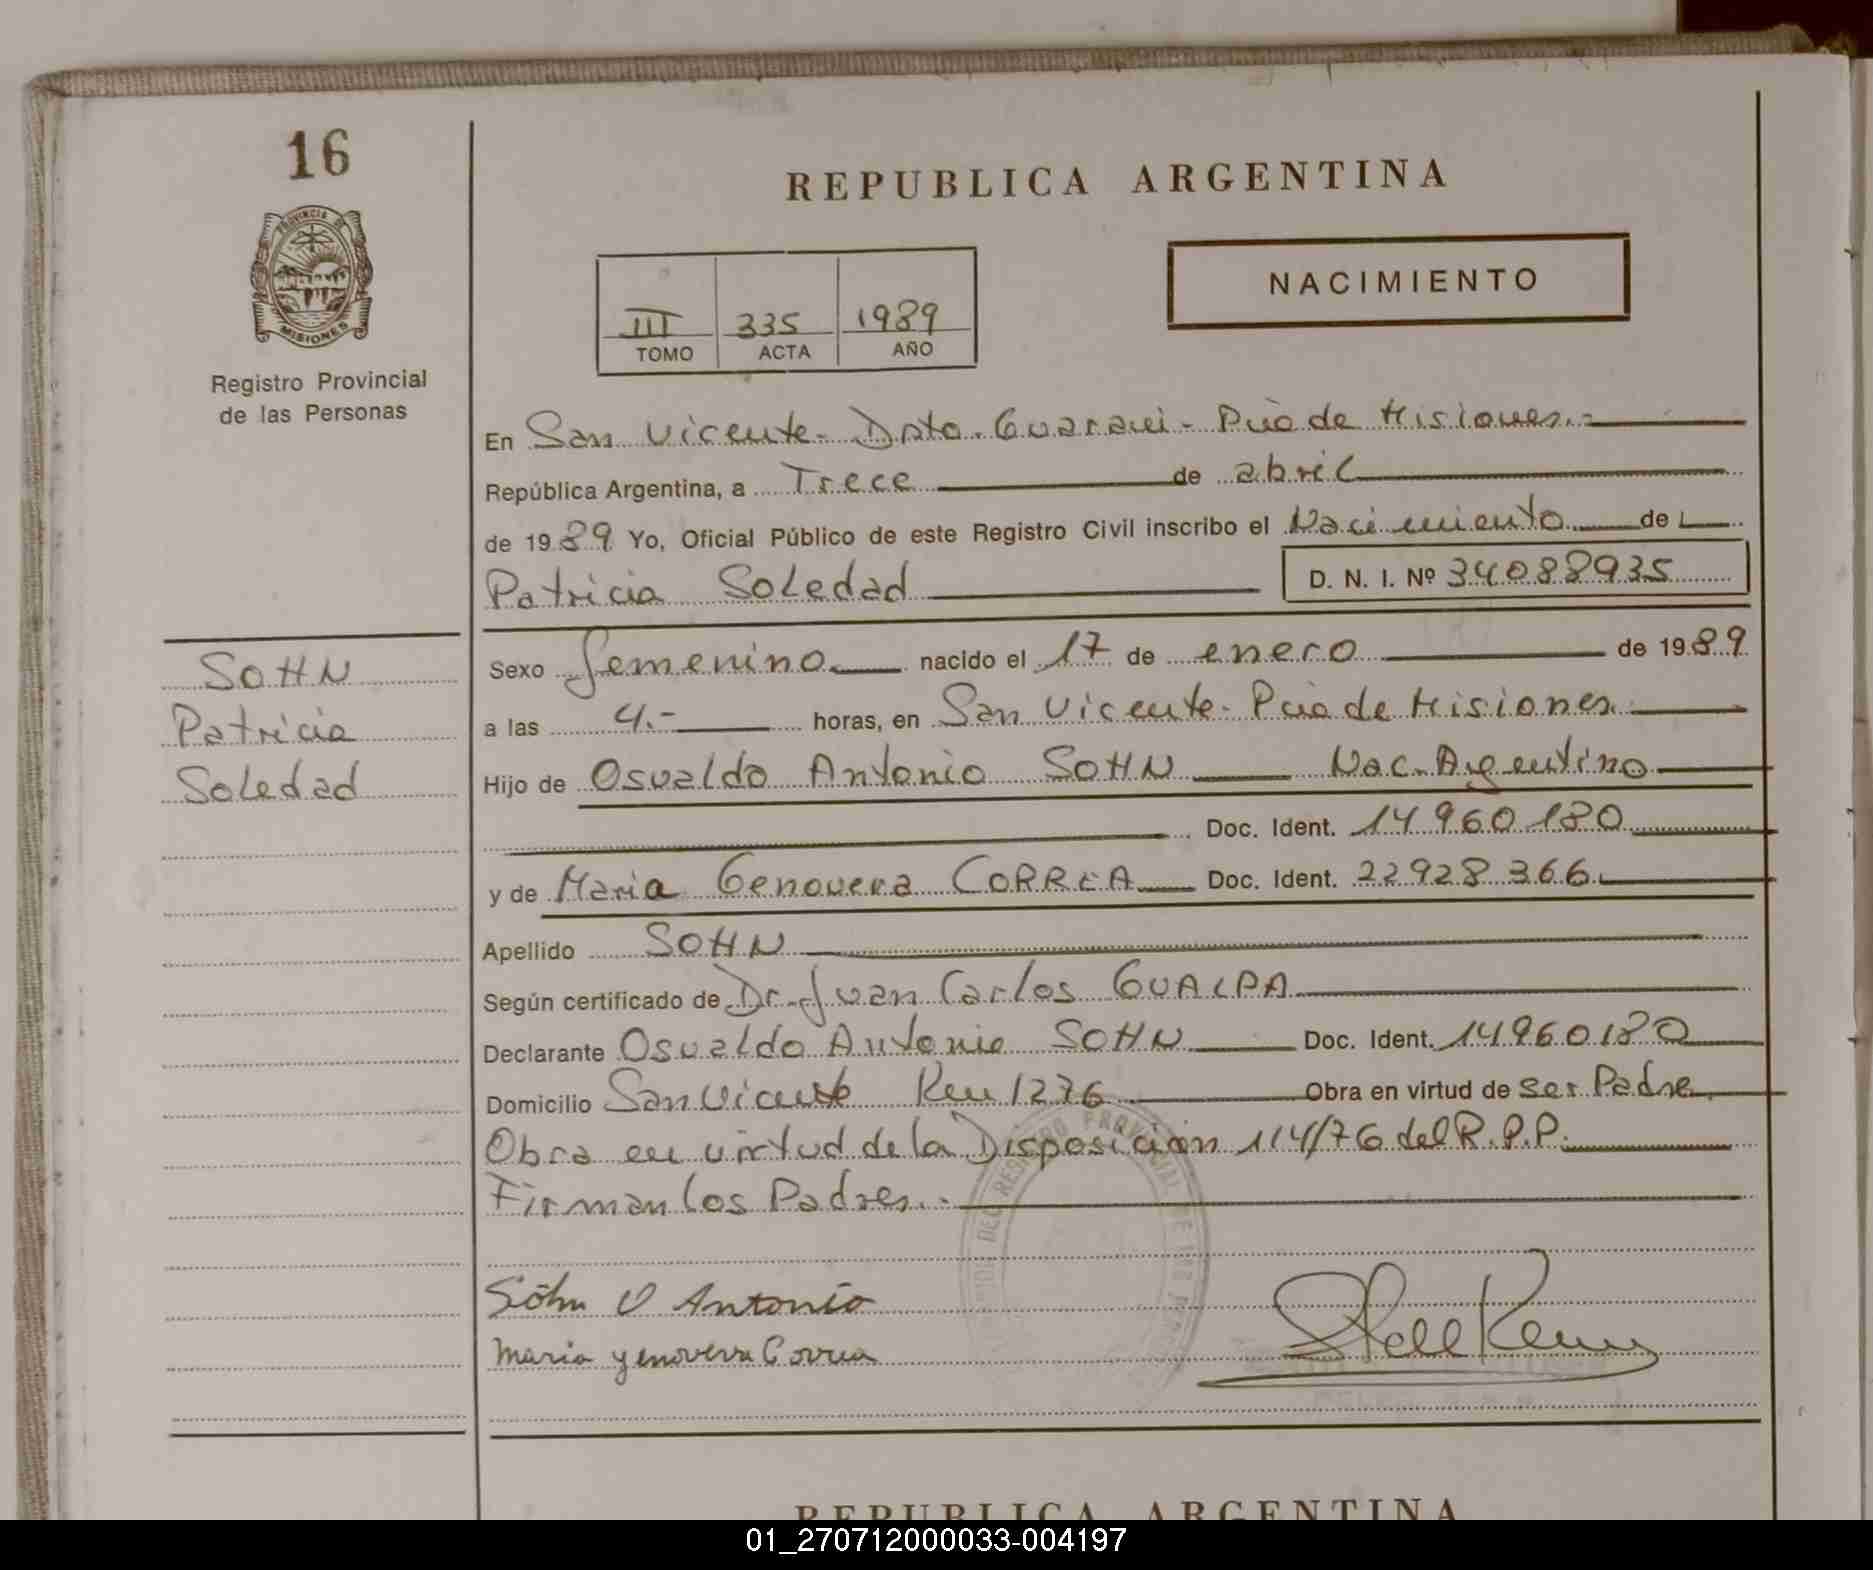 16
REPUBLICA ARGENTINA
PROVINCIA DE
MISIONES
Registro Provincial
de las Personas
NACIMIENTO
III 335 1989
TOMO ACTA AÑO
En San Vicente - Dpto. Guarani - Pcia de Misiones.-
República Argentina, a Trece de abril
de 1989 Yo, Oficial Público de este Registro Civil inscribo el Nacimiento de
Patricia Soledad D. N. I. Nº 34088935
SOHN
Patricia
Soledad
Sexo Femenino nacido el 17 de enero de 1989
a las 4.- horas, en San Vicente - Pcia de Misiones.
Hijo de Osvaldo Antonio SOHN Nac. Argentino
Doc. Ident. 14960180
y de Maria Genovera CORREA Doc. Ident. 22928366
Apellido SOHN
Según certificado de Dr. Juan Carlos GUALPA
Declarante Osvaldo Antonio SOHN Doc. Ident. 14960180
Domicilio San Vicente Km 1276 Obra en virtud de ser Padre
Obra en virtud de la Disposición 114/76 del R.P.P.
Firman los Padres.-
Söhn O Antonio
Maria yenovera Correa
REPUBLICA ARGENTINA
01_270712000033-004197